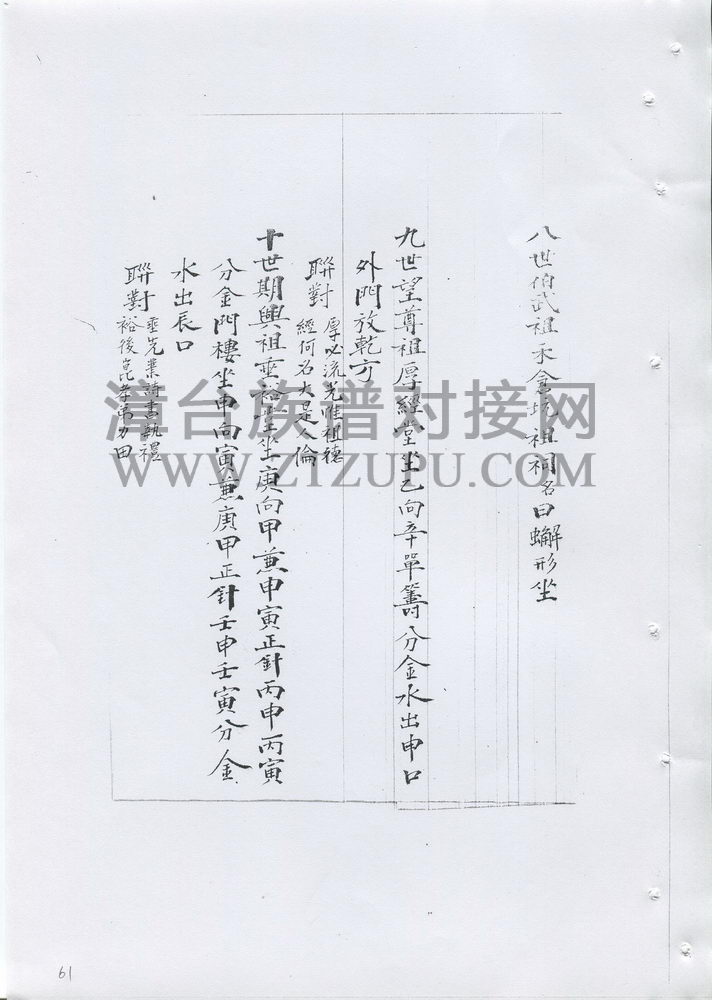 八世伯武祖永倉坑祖祠名曰蠏形坐
九世望尊祖厚經堂坐乙向辛單籌分金水出申口
外門放乾方
聯對
厚必流光唯祖德
經何名大是人倫
十世期興祖垂裕堂坐庚向甲兼申寅正針丙申丙寅
分金門樓坐申向寅兼庚甲正針壬申壬寅分金
水出辰口
聯對
垂先業讀書執禮
裕後昆孝弟力田
漳台族谱对接网
WWW.ZTZUPU.COM
61